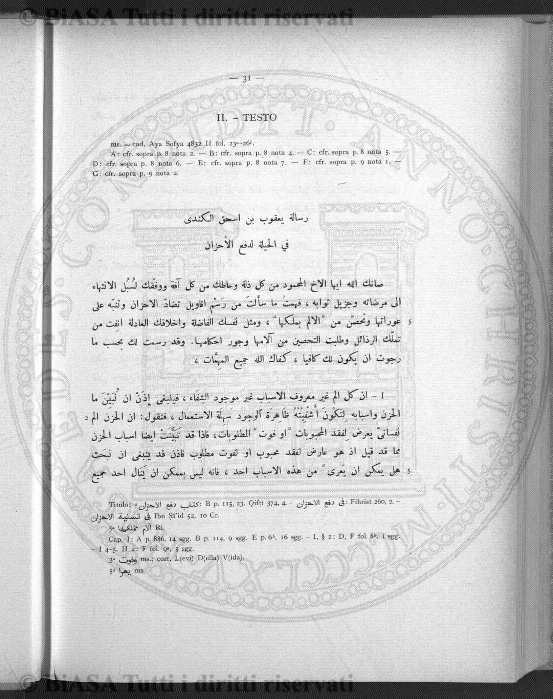 © BiASA Tutti i diritti riservati
— 31 —
II. – TESTO
ms. = cod. Aya Sofya 4832 II fol. 23ᵃ-26ᵇ.
A: cfr. sopra p. 8 nota 2. — B: cfr. sopra p. 8 nota 4. — C: cfr. sopra p. 8 nota 5. —
D: cfr. sopra p. 8 nota 6. — E: cfr. sopra p. 8 nota 7. — F: cfr. sopra p. 9 nota 1. —
G: cfr. sopra p. 9 nota 2.
رسالة يعقوب بن اسحق الكندى
فى الحيلة لدفع الأحزان
صانك الله ايها الاخ المحمود من كل ذلة وحاطك من كل آفة ووفّقك لسُبُل الانتهاء
الى مرضاته وجزيل ثوابه ، فهمتُ ما سألتَ من رَسْم اقاويل تضادّ الاحزان وتنبّه على
عوراتها وتحصّن من "الالم بملكها" ، ومثل نفسك الفاضلة واخلاقك العادلة انفت من 5
تملّك الرذائل وطلبت التحصين من آلامها وجور احكامها. وقد رسمت لك بحسب ما
رجوت ان يكون لك كافيا ، كفاك الله جميع المهمّات ،
I – ان كل الم غير معروف الاسباب غير موجود الشفاء ، فينبغى إذَنْ ان نُبيّنَ ما
الحزن واسبابه لتكون أَشْفِيَتُهُ ظاهرة الوجود سهلة الاستعمال ، فنقول : ان الحزن الم 2
نفسانىّ يعرض لفقد المحبوبات "او فوت" المطلوبات ، فاذا قد تَبَيَّنَتْ ايضا اسباب الحزن
مما قد قيل اذ هو عارض لفقد محبوب او لفوت مطلوب فاذن قد ينبغى ان نبحث
هل يمكن ان يَعْرَى" من هذه الاسباب احد ، فانه ليس بممكن ان يَنال احد جميع 5
Titolo: كتاب دفع الاحزان: B p. 115, 23. Qifṭī 374, 4. – فى دفع الاحزان: Fihrist 260, 2. –
فى تسلية الاحزان Ibn Sāʿid 52, 10 Cr.
Ri.
Cap. I: A p. 886, 14 sgg. B p. 114, 9 sgg. E p. 6ᵇ, 16 sgg. – I, § 2: D, F fol. 8ᵇ, 1 sgg.
– I 4-5. II 2: F fol. 9ᵃ, 5 sgg.
3ᵃ وفوت ms.: corr. L(evi) D(ella) V(ida).
5ᵃ ms.
© BiASA Tutti i diritti riservati